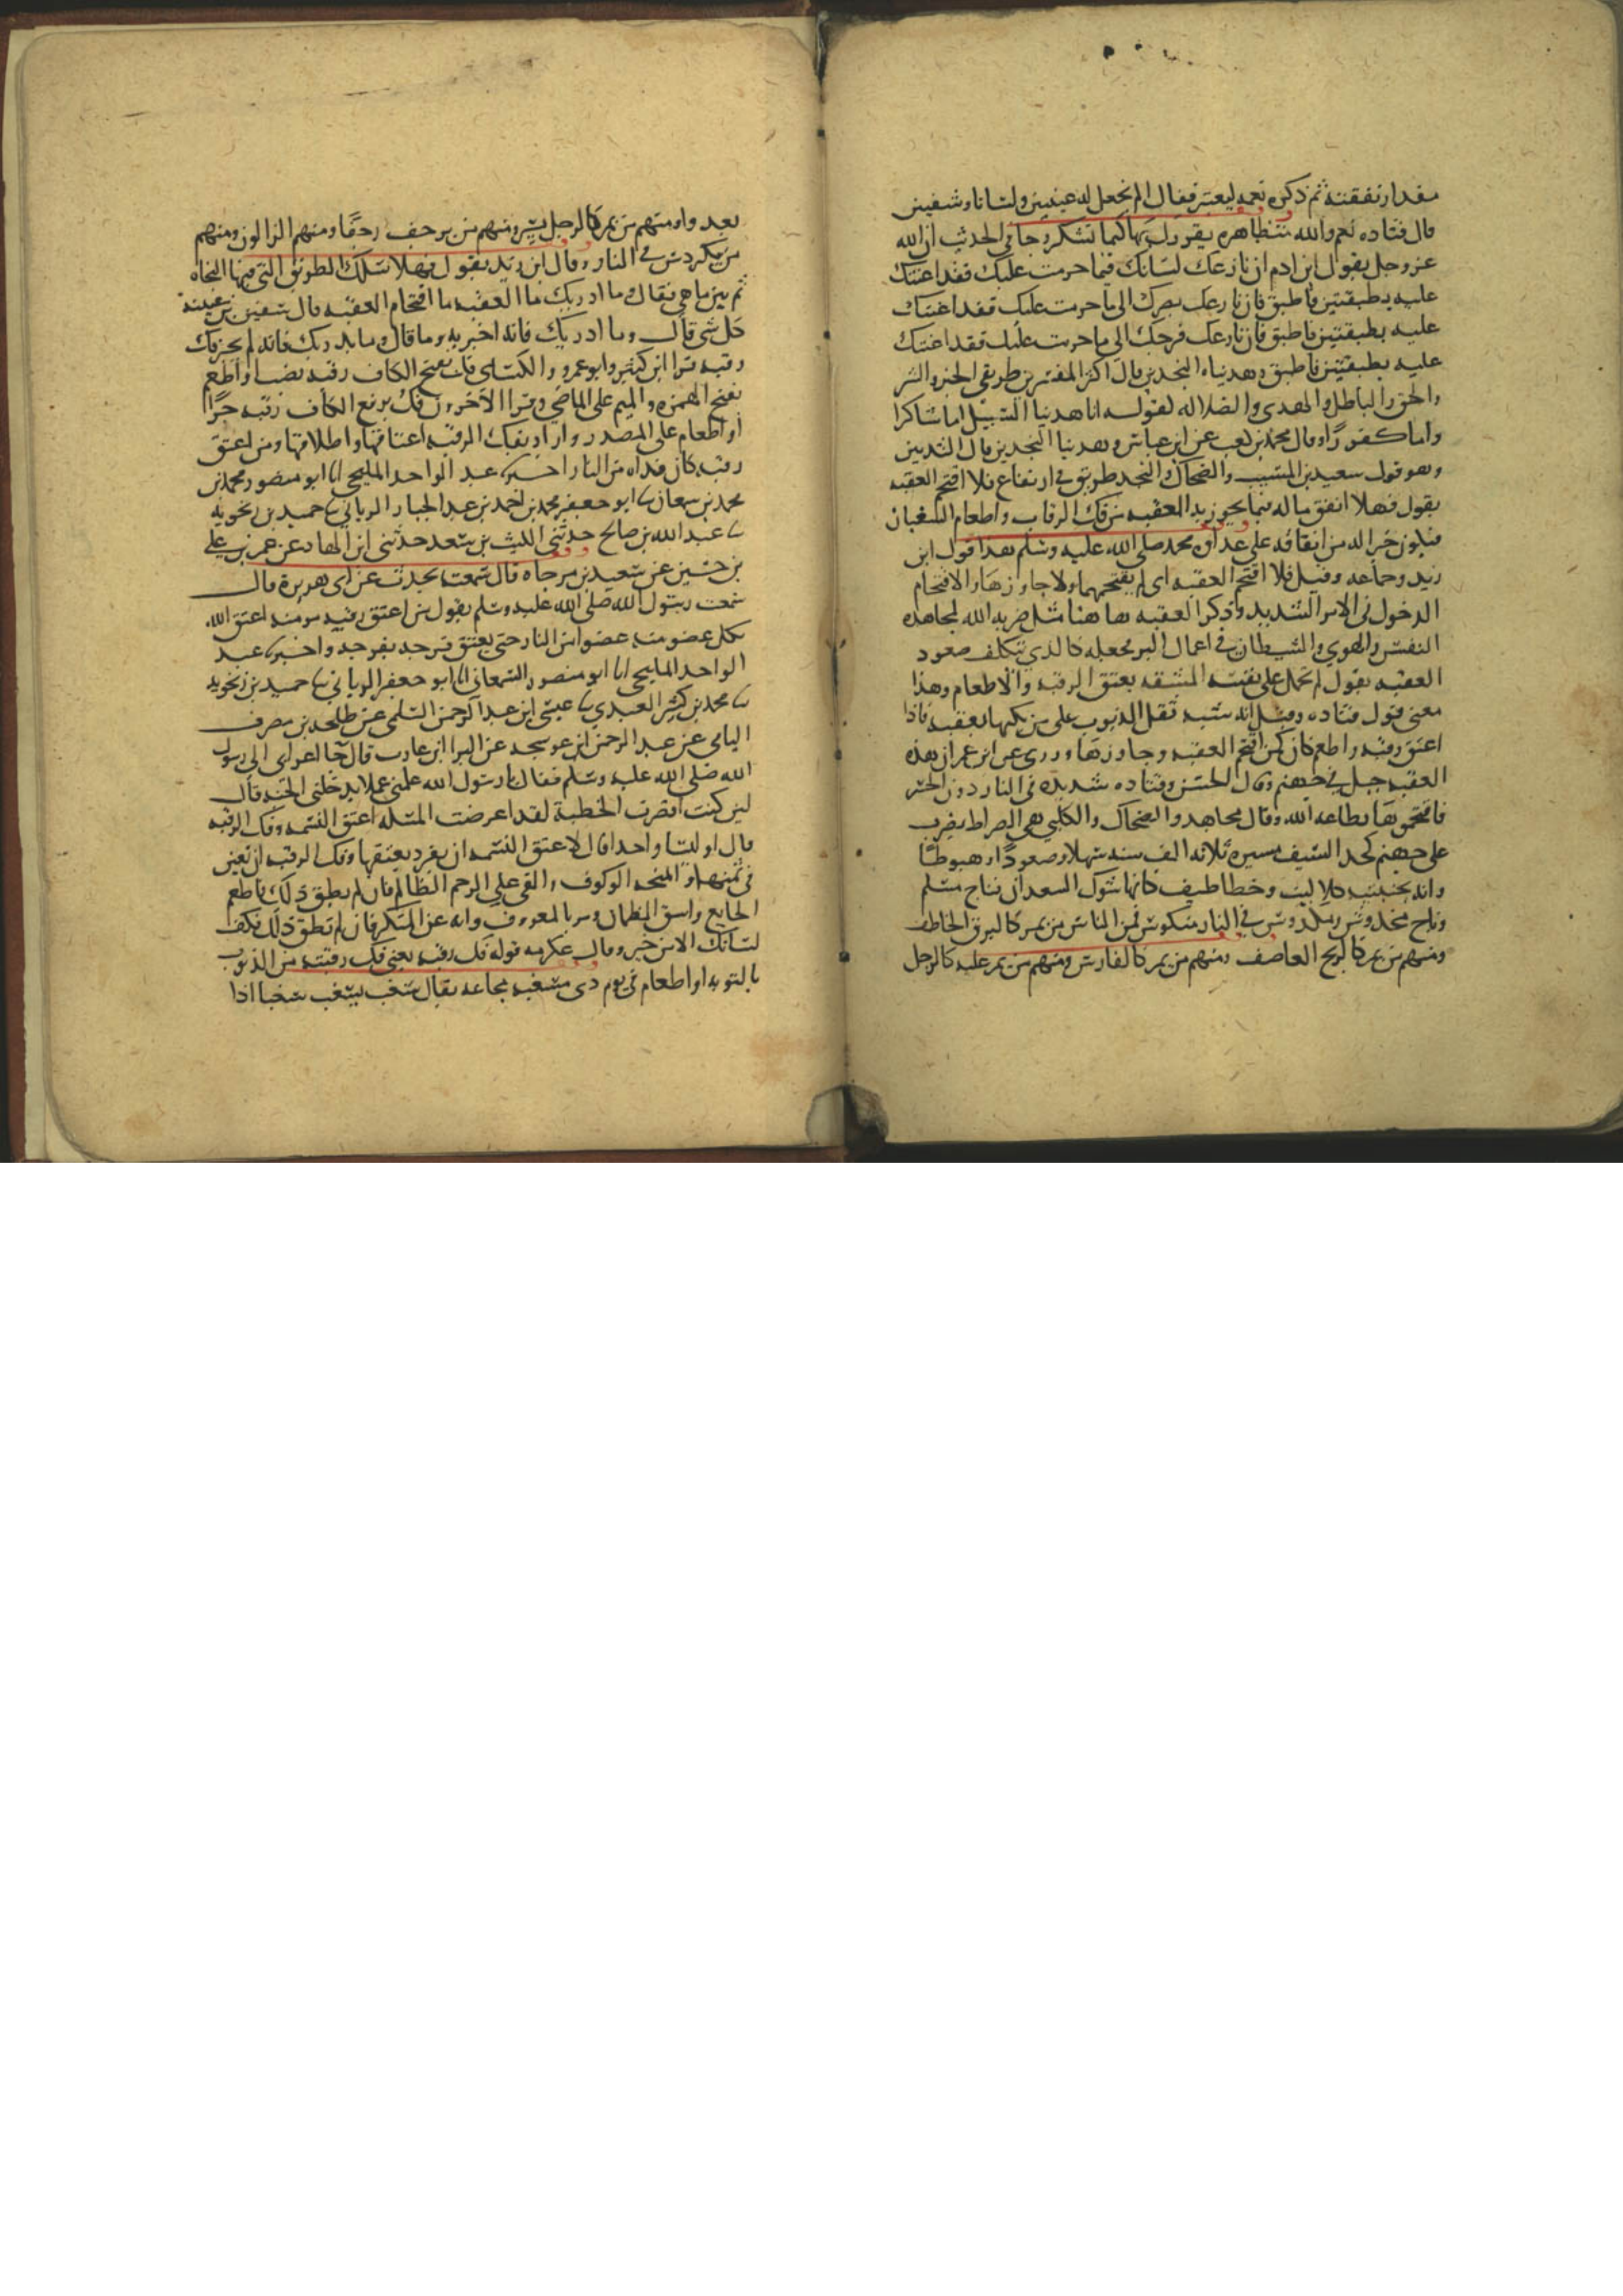 مقدار نفقته ثم ذكره نعمه ليعتبر فقال الم نجعل له عينين ولسانا وشفتين
قال قتاده نعم والله متظاهره يقررك بها كيما تشكر وجا في الحديث ان الله
عز وجل يقول ابن ادم ان نازعك لسانك فيما حرمت عليك فقد اعنتك
عليه بطبقتين فاطبق فان نازعك بصرك الى ما حرمت عليك فقد اعنتك
عليه بطبقتين فاطبق فان نازعك فرجك الى ما حرمت عليك فقد اعنتك
عليه بطبقتين فاطبق وهديناه النجدين قال اكثر المفسرين طريقي الخير والشر
والحق والباطل والهدى والضلاله لقوله انا هدينا السبيل اما شاكرا
واما كفورًا وقال محمد بن كعب عن ابن عباس وهدينا النجدين قال الثديين
وهو قول سعيد بن المسيب والضحاك والنجد طريق في ارتفاع فلا اقتحم العقبه
يقول فهلا انفق ماله فيما يجوز به العقبه من فك الرقاب واطعام السغبان
فيكون خيرا له من انفاقه على عداوه محمد صلى الله عليه وسلم هذا قول ابن
زيد وجماعه وقيل فلا اقتحم العقبه اي لم يقتحمها ولا جاوزها والاقتحام
الدخول في الامر الشديد وذكر العقبه ها هنا مثل ضربه الله لمجاهده
النفس والهوي والشيطان في اعمال البر فجعله كالذي يتكلف صعود
العقبه يقول لم تحمل على نفسه المشقه بعتق الرقبه والاطعام وهذا
معنى قول قتاده وقيل انه شبه ثقل الذنوب على مرتكبها بعقبه فاذا
اعتق رقبه واطعم كان كمن اقتحم العقبه وجاوزها وروي عن ابن عمر ان هذه
العقبه جبل في جهنم وقال الحسن وقتاده شديده في النار دون الجسر
فاقتحموها بطاعه الله وقال مجاهد والضحاك والكلبي هي الصراط يضرب
على جهنم كحد السيف مسيره ثلاثه الف سنه سهلا وصعودًا وهبوطًا
وانه بجنبتيه كلاليب وخطاطيف كانها شوك السعدان فناج مسلم
وناج مخدوش ومكردوس في النار منكوس فمن الناس من يمر كالبرق الخاطف
ومنهم من يمر كالريح العاصف ومنهم من يمر كالفارس ومنهم من يمر عليه كالرجل
يعدوا ومنهم من يمر كالرجل يسير ومنهم من يزحف زحفًا ومنهم الزالون ومنهم
من يكردس في النار وقال ابن زيد يقول فهلا سلك الطريق التي فيها النجاه
ثم بين ما هي فقال وما ادريك ما العقبه ما اقتحام العقبه قال سفين بن عيينه
كل شي قال وما ادريك فانه اخبر به وما قال وما يدريك فانه لم يخبر فك
رقبه قرا ابن كثير وابو عمرو والكسائي فك بفتح الكاف رقبه نصبا واطعم
بفتح الهمزه والميم على الماضي وقرا الآخرون فك برفع الكاف رقبه جرًا
او اطعام على المصدر واراد بفك الرقبه اعتاقها واطلاقها ومن اعتق
رقبه كان فداه من النار اخبرنا عبد الواحد المليحي انا ابو منصور محمد بن
محمد بن سمعان ثنا ابو جعفر محمد بن احمد بن عبد الجبار الرياني ثنا حميد بن زنجويه
ثنا عبد الله بن صالح حدثني الليث بن سعد حدثني ابن الهاد عن عمر بن علي
بن حسين عن سعيد بن مرجاه قال سمعته يحدث عن ابى هريرة قال
سمعت رسول الله صلى الله عليه وسلم يقول من اعتق رقبه مومنه اعتق الله
بكل عضو منه عضوا من النار حتى يعتق فرجه بفرجه واخبرنا عبد
الواحد المليحي انا ابو منصور السمعاني انا ابو جعفر الرياني ثنا حميد بن زنجويه
ثنا محمد بن كثير العبدي ثنا عيسى ابن عبد الرحمن السلمي عن طلحه بن مصرف
اليامي عن عبد الرحمن ابن عوسجه عن البرا ابن عازب قال جا اعرابي الى رسول
الله صلى الله عليه وسلم فقال يا رسول الله علمني عملا يدخلني الجنه قال
لين كنت اقصرت الخطبة لقد اعرضت المسله اعتق النسمه وفك الرقبه
قال اوليسا واحدا قال لا عتق النسمه ان يفرد بعتقها وفك الرقبه ان تعين
في ثمنها والمنحه الوكوف والفي على الرحم الظالم فان لم يطق ذلك فاطعم
الجايع واسق الظمان ومر بالمعروف وانه عن المنكر فان لم تطق ذلك فكف
لسانك الا من خير وقال عكرمه قوله فك رقبه يعني فك رقبته من الذنوب
بالتوبه او اطعام في يوم ذى مسغبه مجاعه يقال سغب يسغب سغبا اذا